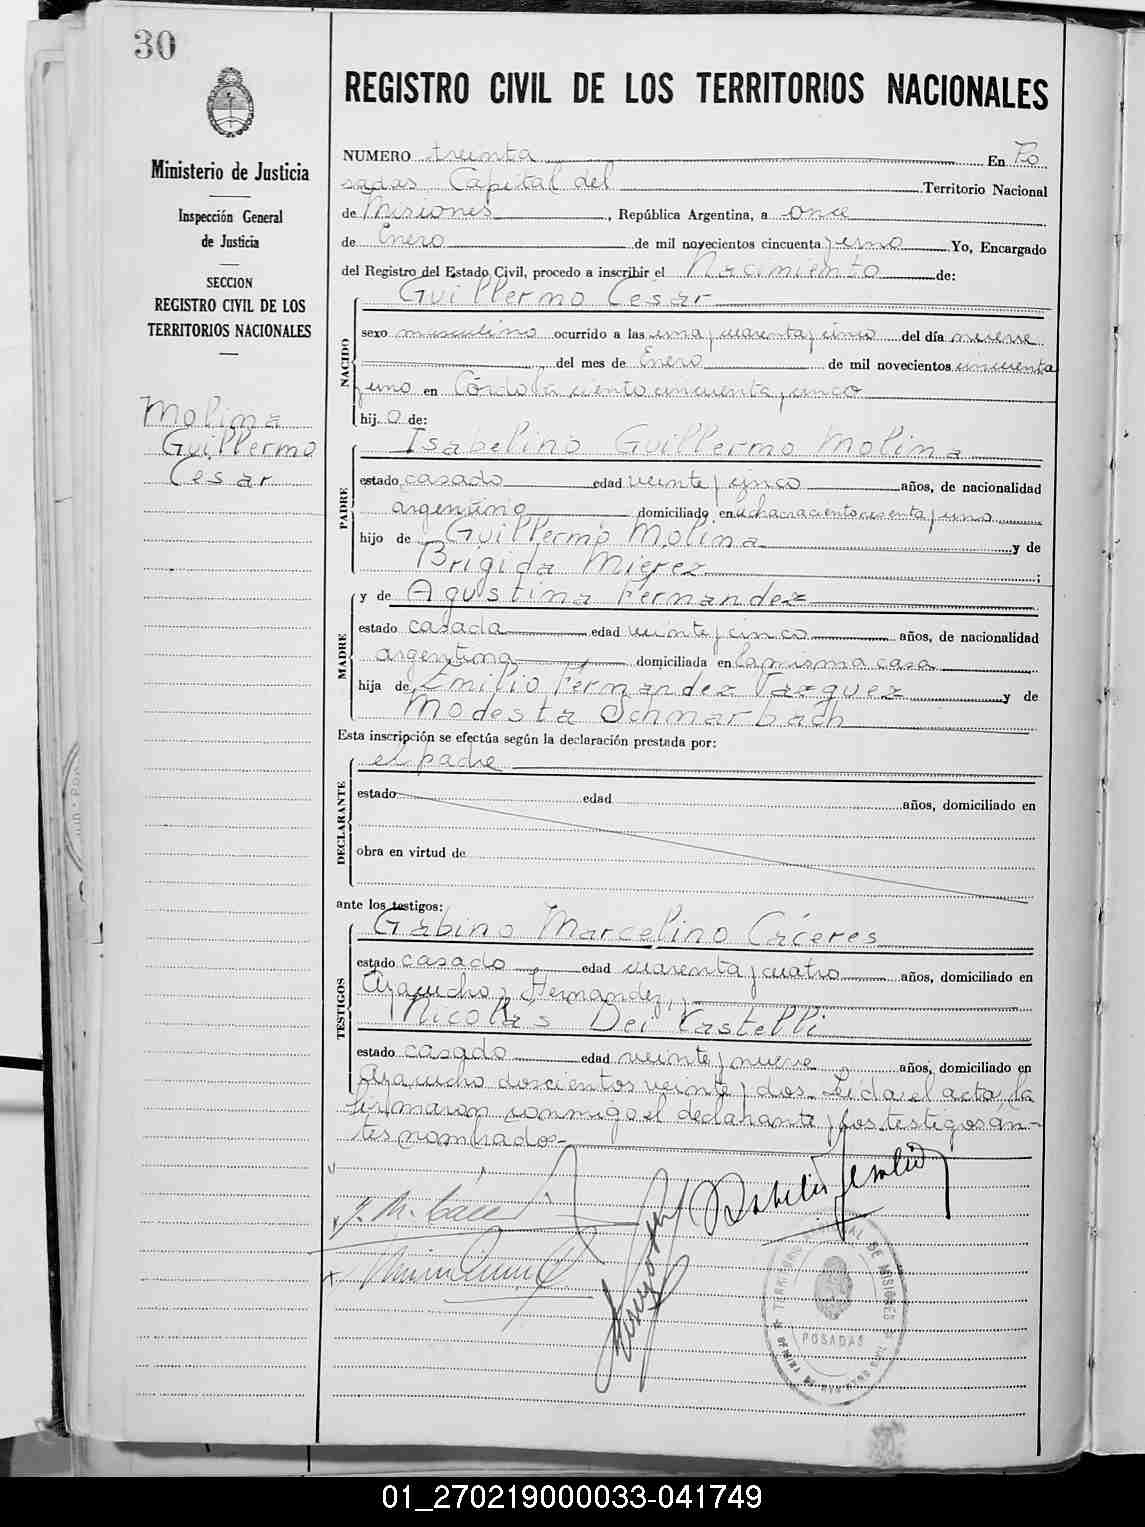 30
Ministerio de Justicia
Inspección General
de Justicia
SECCION
REGISTRO CIVIL DE LOS
TERRITORIOS NACIONALES
Molina
Guillermo
Cesar
REGISTRO CIVIL DE LOS TERRITORIOS NACIONALES
NUMERO treinta En Po
sadas Capital del Territorio Nacional
de Misiones, República Argentina, a once
de Enero de mil novecientos cincuenta y uno Yo, Encargado
del Registro del Estado Civil, procedo a inscribir el Nacimiento de:
NACIDO
Guillermo Cesar
sexo masculino ocurrido a las una y cuarenta y cinco del día nueve
del mes de Enero de mil novecientos cincuenta
y uno en Córdoba ciento cincuenta y cinco
hij o de:
PADRE
Isabelino Guillermo Molina
estado casado edad veinte y cinco años, de nacionalidad
argentino domiciliado en chacra ciento sesenta y uno
hijo de Guillermo Molina y de
Brigida Mierez;
MADRE
y de Agustina Fernandez
estado casada edad veinte y cinco años, de nacionalidad
argentina domiciliada en la misma casa
hija de Emilio Fernandez Vazquez y de
Modesta Schmarbach
Esta inscripción se efectúa según la declaración prestada por:
DECLARANTE
el padre
estado edad años, domiciliado en
obra en virtud de
ante los testigos:
TESTIGOS
Gabino Marcelino Cáceres
estado casado edad cuarenta y cuatro años, domiciliado en
Ayacucho y Hernandez, y
Nicolás Dei Castelli
estado casado edad veinte y nueve años, domiciliado en
Ayacucho doscientos veinte y dos. Leida el acta, la
firmaron conmigo el declarante y los testigos an-
tes nombrados-
G. M. Cáceres
TERRITORIO NACIONAL DE MISIONES
POSADAS
01_270219000033-041749